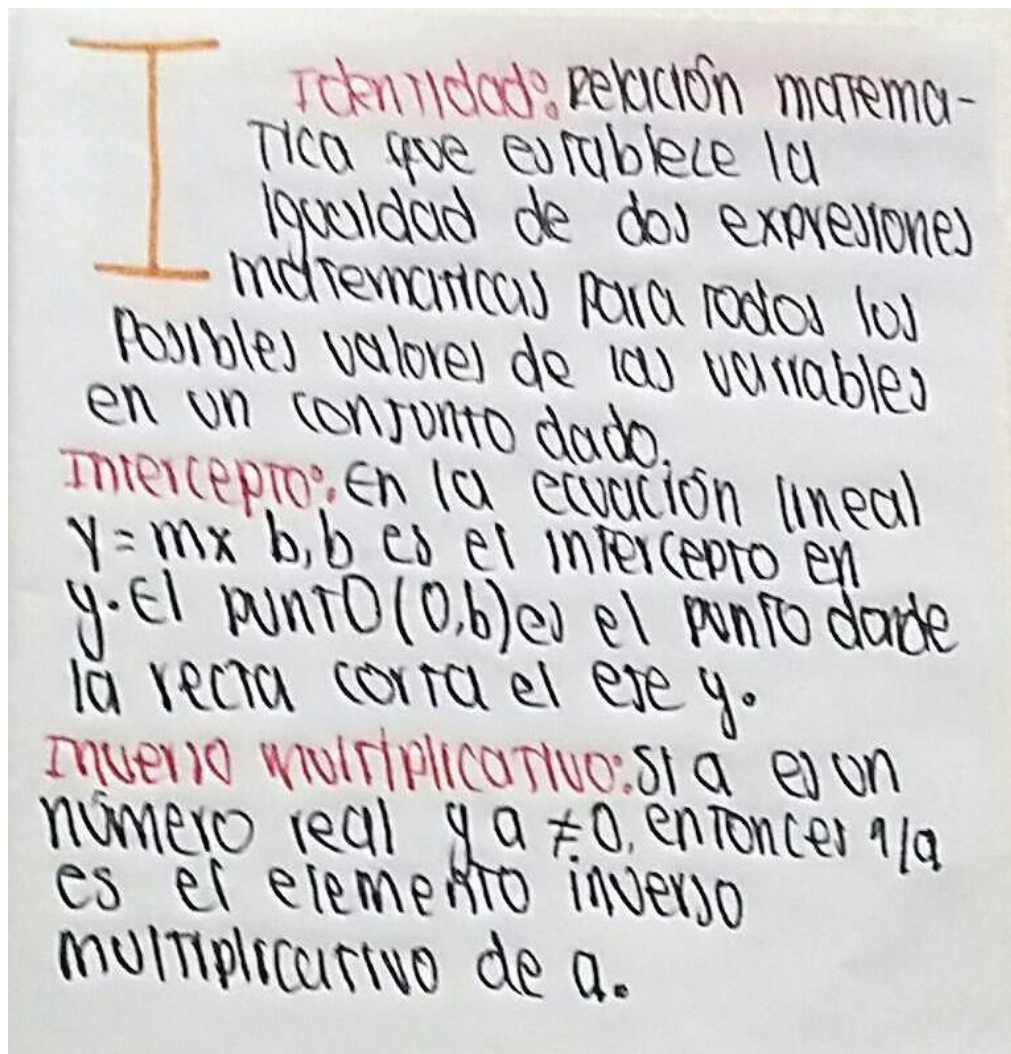 I
Identidad: Relación matema-
tica que establece la
igualdad de dos expresiones
matematicas para todos los
posibles valores de las variables
en un conjunto dado.
Intercepto: En la ecuación lineal
y=mx b, b es el intercepto en
y. El punto (0,b) es el punto donde
la recta corta el eje y.
Inverso multiplicativo: Si a es un
número real y a ≠ 0, entonces 1/a
es el elemento inverso
multiplicativo de a.